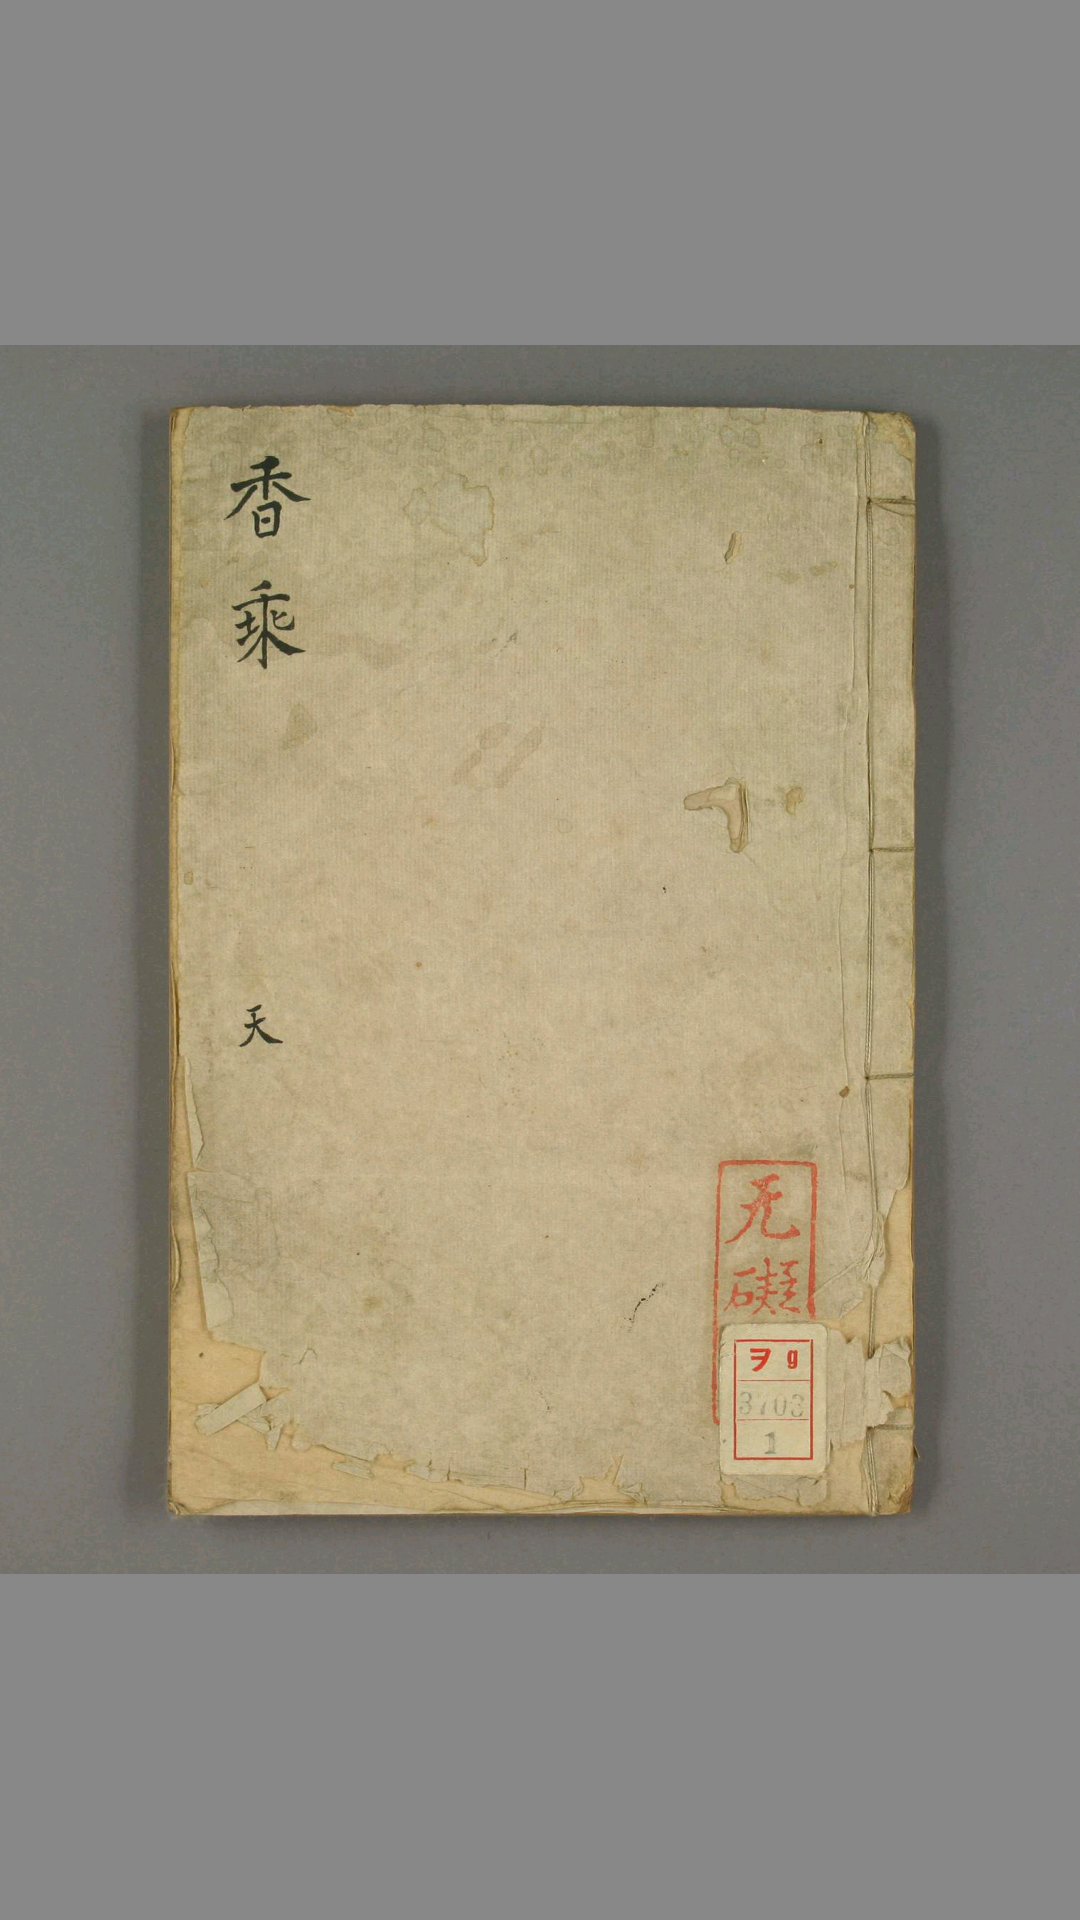 香乘
天
无礙
ヲ g
3703
1